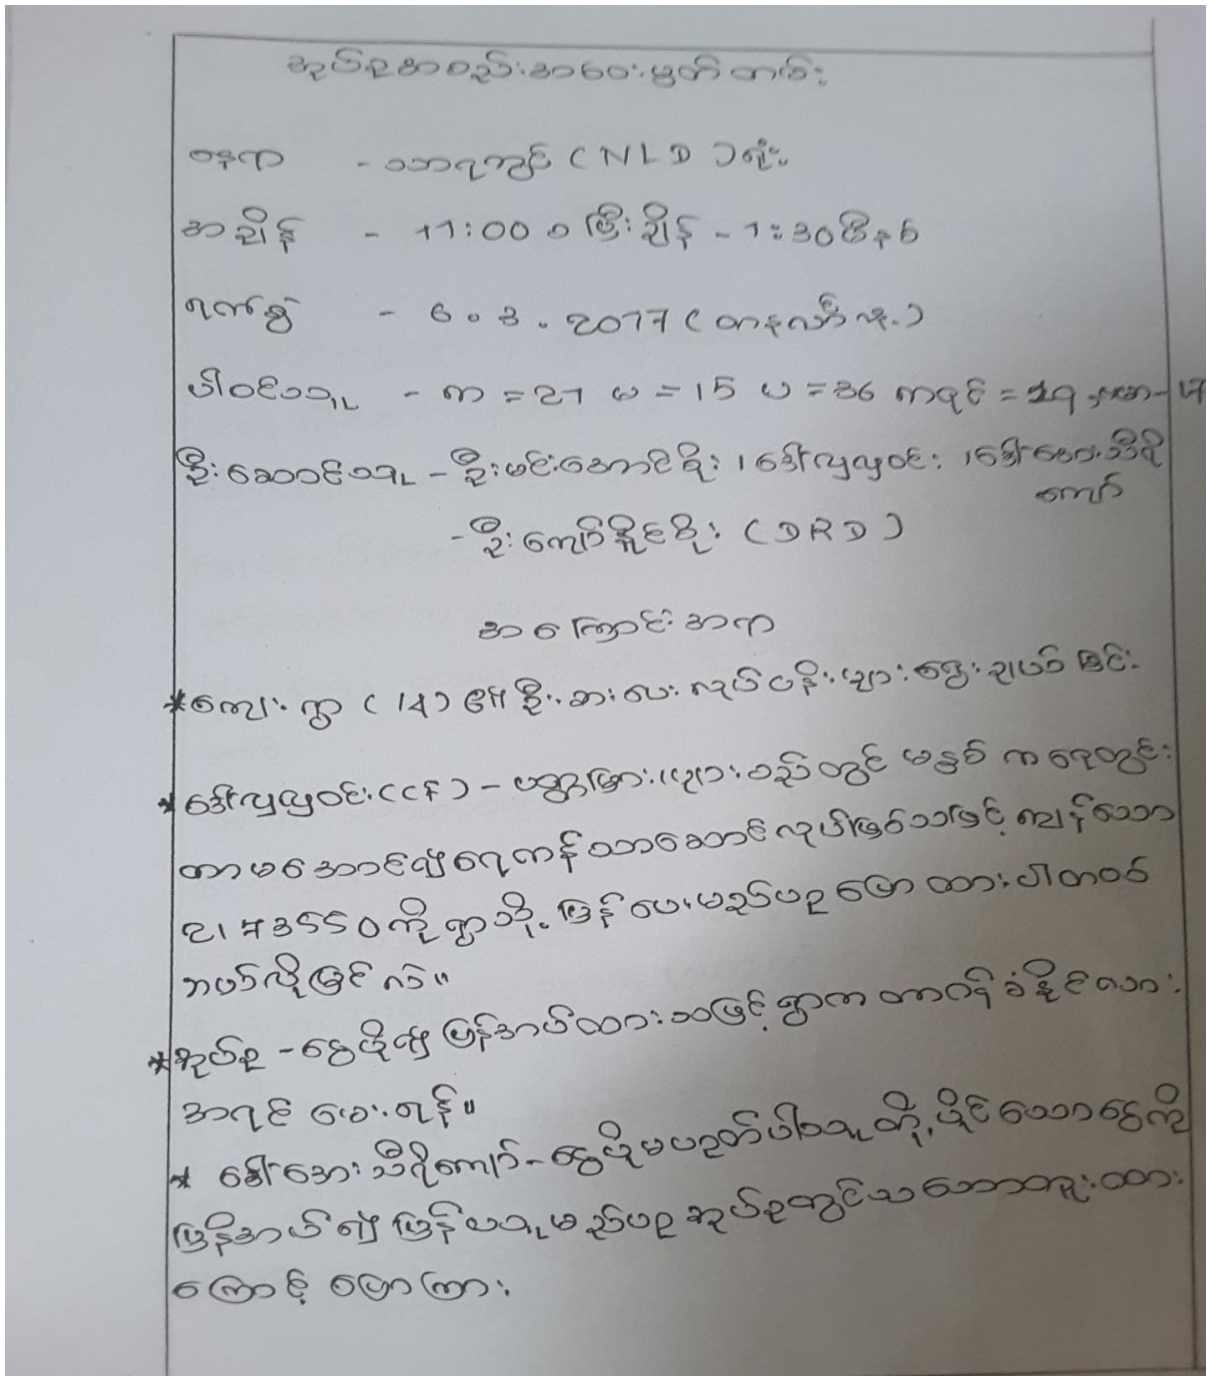 အုပ်စုအစည်းအဝေးမှတ်တမ်း
နေရာ - သာရကွင် (NLD) ရုံး
အချိန် - 11:00 စ ပြီးချိန် - 1:30 မိနစ်
ရက်စွဲ - 6.3.2017 (တနင်္လာနေ့)
ပါဝင်သူ - က = 21 မ = 15 ပ = 36 ကရင် = 19 ဗမာ - 17
ဦးဆောင်သူ - ဦးမင်းအောင်စိုး ၊ ဒေါ်လှလှဝင်း ၊ ဒေါ်အေးသီရိ
ကျော်
- ဦးကျော်နိုင်စိုး (DRD)
အကြောင်းအရာ
* ကျေးရွာ (14) ၏ ဦးစားပေးလုပ်ငန်းများ ရွေးချယ်ခြင်း
* ဒေါ်လှလှဝင်း (CF) - ပဏ္ဍုမြားများစည်တွင် မနှစ်က ရေတွင်း
တာမအောင်၍ ရေကန်သာဆောင်လုပ်ဖြစ်သဖြင့် ကျန်သော
21733550 ကို ရွာသို့ ပြန်ပေးမည်ဟု ပြောထားပါတယ်
ဘယ်လိုမြင်လဲ။
* အုပ်စု - ငွေပို၍ ပြန်အပ်ထားသဖြင့် ရွာက တာဝန်ခံနိုင်လား
အရင်မေးရန်။
* ဒေါ်အေးသီရိကျော် - ငွေပိုမဟုတ်ပါသူတို့ပိုင်သောငွေကို
ပြန်အပ်၍ ပြန်ယူမည်ဟု အုပ်စုတွင်သဘောတူထား
ကြောင့် ပြောကြား